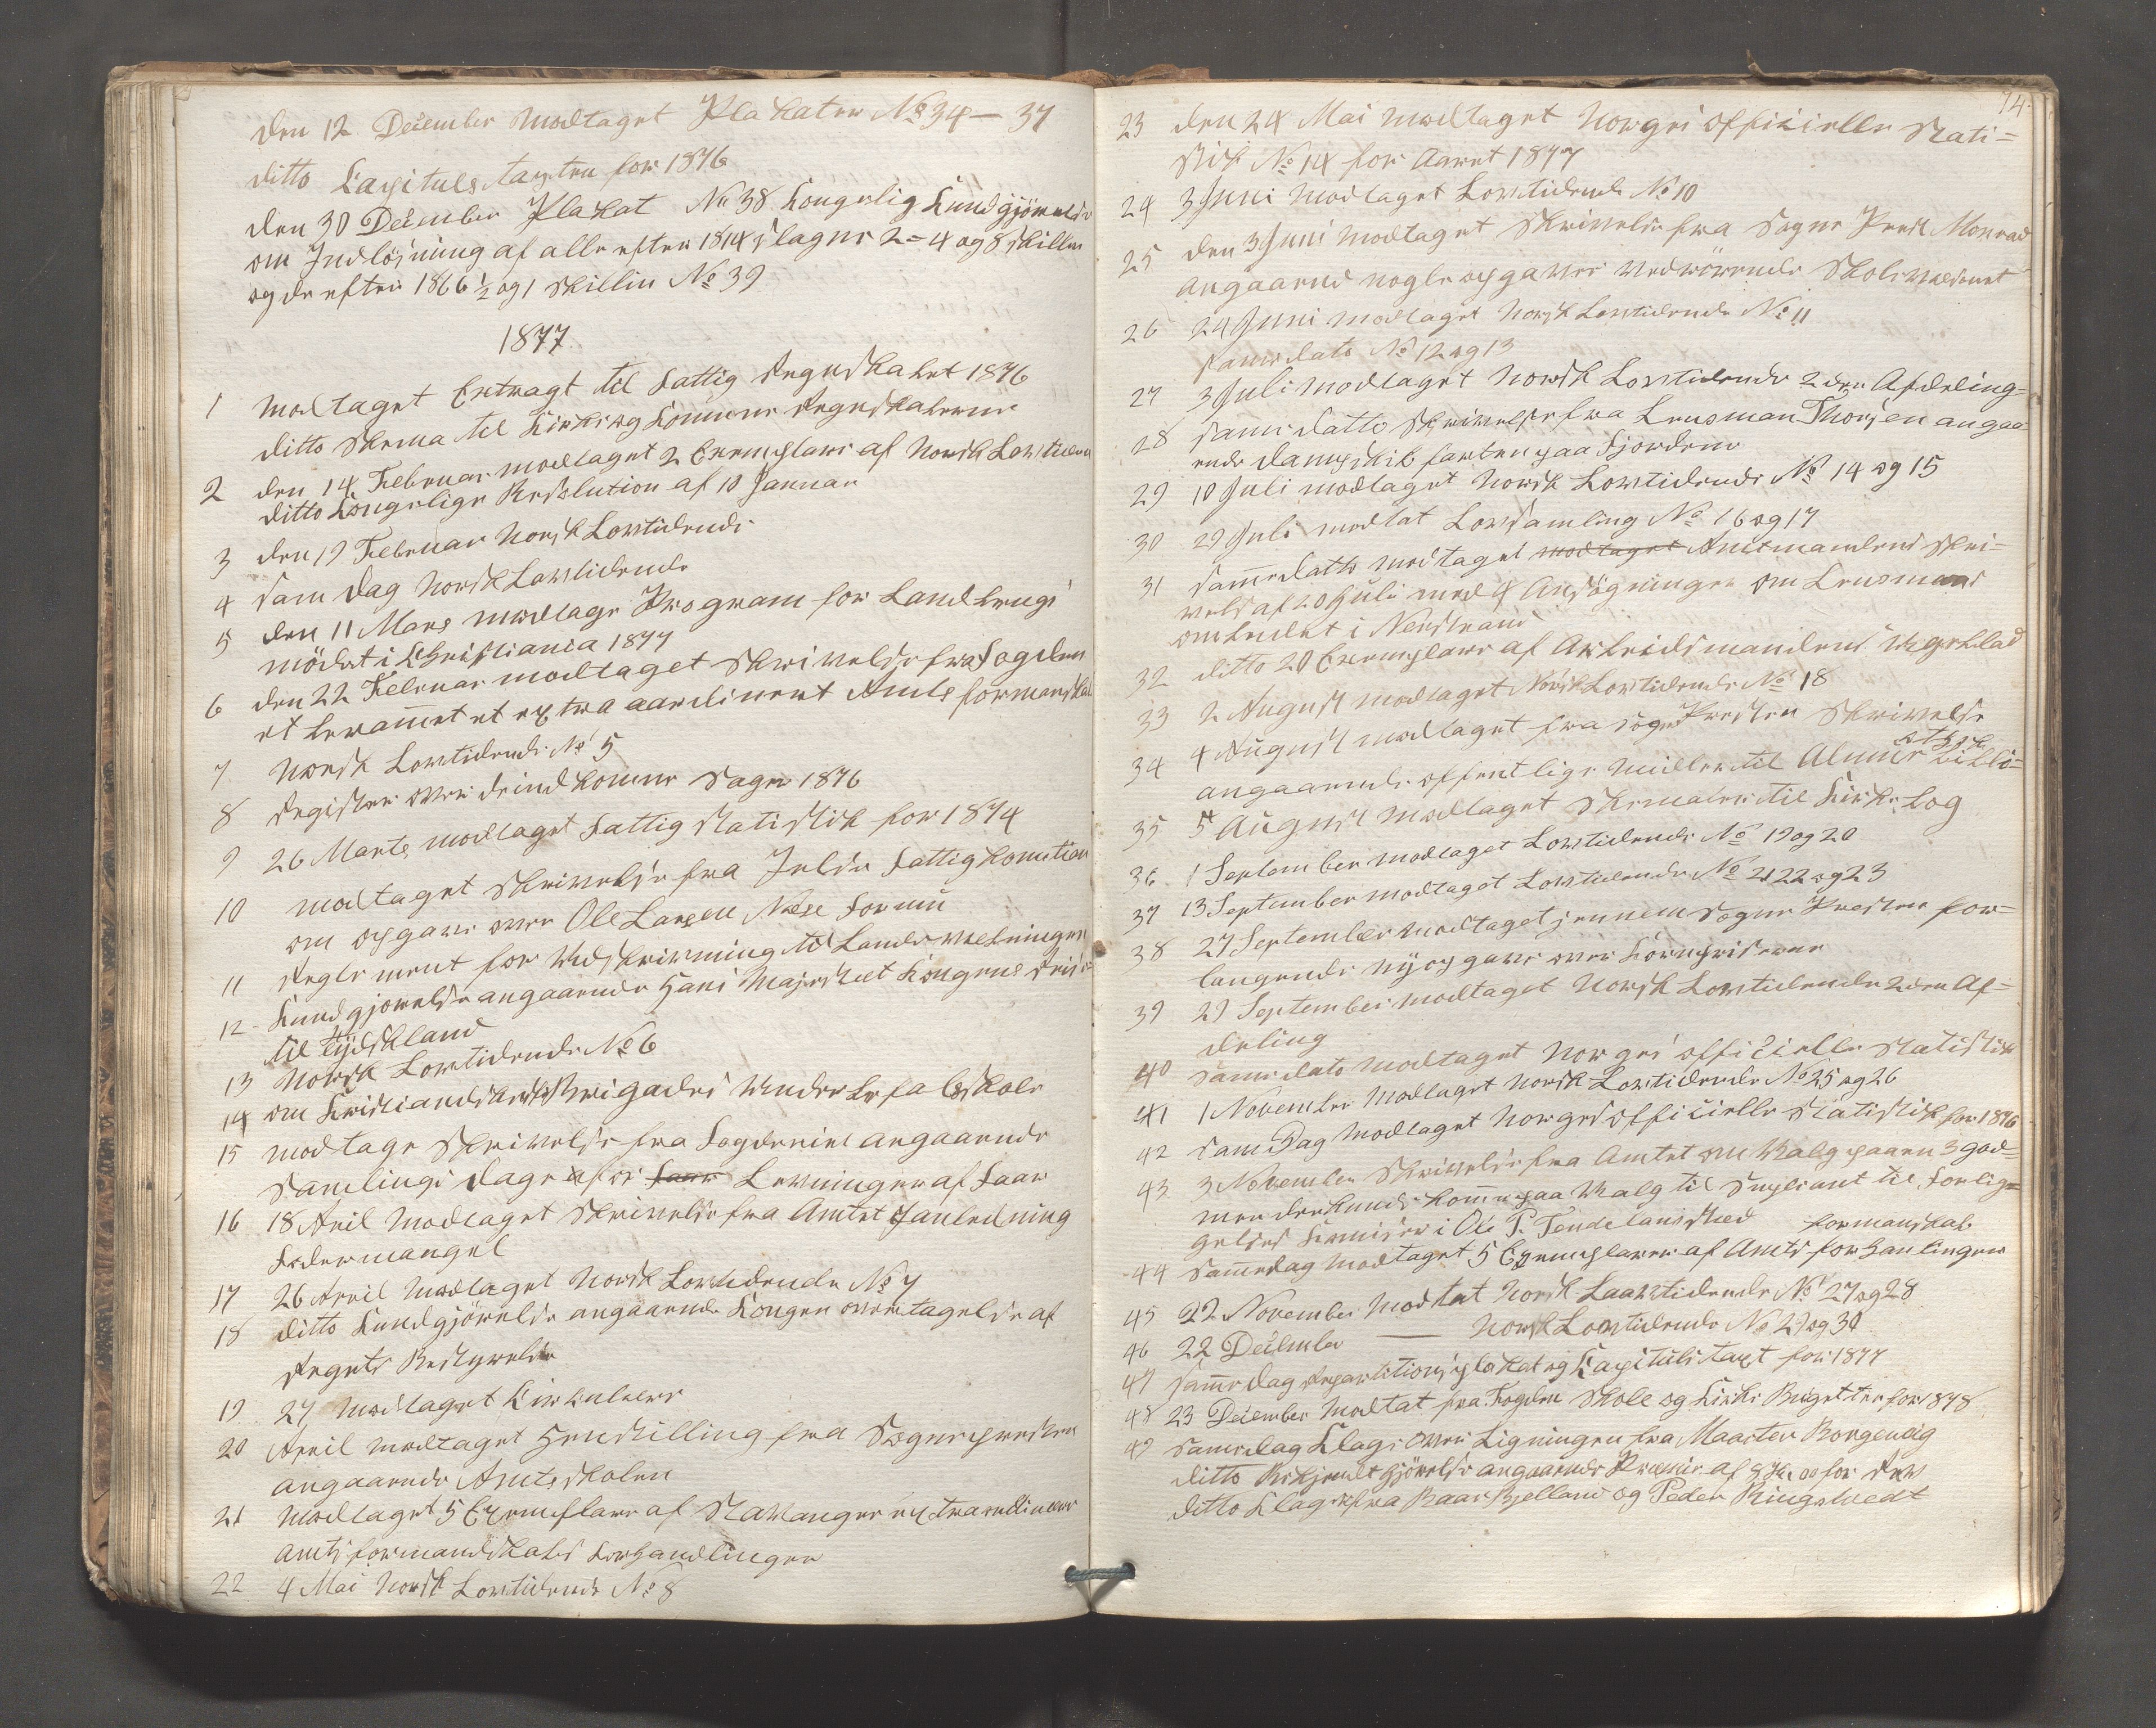 den 12 December modtaget Plakater No 34 — 37
ditto Capitulstaxten for 1876
den 30 December Plakat No 38 Kongelig Kundgjörelse
om Indlösning af alle efter 1814 slagne 2 = 4 og 8 skillin
og de efter 1866 ½ og 1 skillin No 39
1877
1 modtaget Extragt til Fattig Regnskabet 1876
ditto Skema til Kirke og Komune Regnskaberne
2 den 14 Februar modtaget 2 Exemplarer af Norsk Lovtidend
ditto Kongelige Resolution af 10 Januar
3 den 19 Februar Norsk Lovtidende
4 sam dag Norsk Lovtidende
5 den 11 Mars modtage Program for Landbrugs
mödet i Christiania 1877
6 den 22 Februar modtaget Skrivelse fra Fogden
et berammet et extra aardinert Amtsformandskab
7 Norsk Lovtidende No 5
8 Register over de indkomne Sager 1876
9 26 Marts modtaget Fattigstatistik for 1874
10 modtaget Skrivelse fra Jelse Fattigkomition
om opgave over Ole Larsen Formu
11 Reglement for Udskrivning til Landeværnet
12 - Kundgjorelse angaaende Hans Majestæt Kongens Reise
til tydskland
13 Norsk Lovtidende No 6
14 om Kristiandsandske Brigades Underbefalsskole
15 modtage Skrivelse fra Fogderiet angaaende
Samlings dage af Levninger af Faar
16 18 Aril modtaget Skrivelse fra Amtet J anledning
Fodermangel
17 26 April modtaget Norsk Lovtidende No 7
18 ditto Kundgjörelse angaaende Kongen overtagelse af
Regets Bestyrelse
19 27 modtaget Cirkulære
20 April modtaget Henstilling fra Sognepresten
angaaende Amtsskolen
21 modtaget 5 Exemplarer af Stavanger extraordinære
amtsformandskabs Forhandlinger
22 4 Mai Norsk Lovtidende No 8
74.
23 den 24 Mai modtaget Norges officielle Stati=
stik No 14 for Aaret 1877
24 3 Juni modtaget Lovtidende No 10
25 den 3 Juni modtaget Skrivelse fra Sogne Prest Monrad
angaaend nogle opgaver vedrörende Skolevæsenet
26 24 Juni modtaget Norsk Lovtidende No 11
samedato No 12 og 13
27 3 Juli modtaget Norsk Lovtidende 2den Afdeling=
28 same datto Skrivelse fra Lensman Thorsen angaa
ende dampskibsfarten paa Fjordene
29 10 Juli modtaget Norsk Lovtidende No 14 og 15
30 29 Juli modtat Lovsamling No 16 og 17
31 samedatto modtaget modtaget Amtmandens skri=
vels af 20 Juli med 4 Ansögninger om Lensmans
ombudet i Nerstrand
32 ditto 20 Exemplarer af Arbeidsmandens Ugeblad
33 2 August modtaget Norsk Lovtidende No 18
34 4 August modtaget fra SognePresten Skrivelse
angaaende offentlige midler til Almue bibli=
othek
35 5 August modtaget Skemater til Kirke Tog
36 1 September modtaget Lovtidende No 19 og 20
37 13 September modtaget Lovtidende No 21 22 og 23
38 27 September modtaget jennem Sogne Presten for=
langende ny opgave over Kornpriserne
39 29 September modtaget Norsk Lovtidende 2den Af=
deling
40 samedato modtaget Norges officielle Statistik
41 1 November modtaget Norsk Lovtidende No 25 og 26
42 samDag modtaget Norges officielle Statistik for 1876
43 3 November Skrivelse fra Amtet om Valg paa en 3 god=
mænd
geles Komisær i Ole P. Tendelansstad
44 samedag modtaget 5 Exemplarer af Amts formandskab forhanlinger
45 22 November modtat Norsk Laavtidende No 27 og 28
46 22 December — Norsk Lovtidende No 29 og 30
47 samedag Repartitionsplakat og Kapitulstaxt for 1877
48 23 December modtat fra Fogden Skole og Kirke Bugetter for 1878
49 samedag Klage over Ligningen fra Maarten Borgenvig
ditto Bekjendtgjörelse angaaende Præmie af 8 Kr. 00 for
ditto Klage fra Baar Bjelland og Peder Ringstvedt